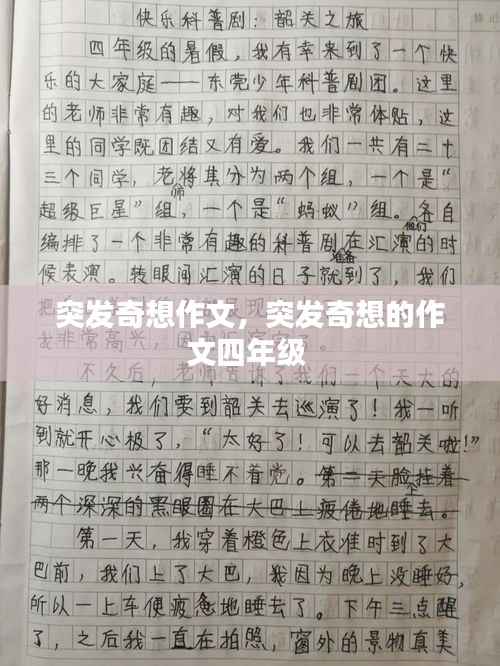 快乐科普剧：韶关之旅
四年级的暑假，我有幸来到了一个快
乐的大家庭——东莞少年科普剧团。这里
的老师非常有趣，对我们也非常体贴，这
里的同学既团结又有爱。我们一共有二十
三个同学，老将其分为两个组，一个是“
师
超级巨星”组，一个是“蚂蚁”组。各自
他们
编排了一个非常有趣的科普剧在汇演的时
准备
候表演。转眼间汇演的日子就到了，我们
突发奇想作文，突发奇想的作
文四年级
我非常高兴，
不久后，老师告诉了我们一个天大的
好消息，我们要到韶关去巡演了！我一听
到就开心极了，“太好了！可以去韶关啦！”
那一晚我兴奋得睡不着觉。第二天脸挂着
个
两个深深的黑眼圈在大巴上疲倦地睡去。
第一天，我穿着橙色上衣准时到了大
巴前，我们上了大巴，我因为晚上没睡好，
所以一上车便疲惫地睡去了。下午三点醒
了，之后我一直在拍照，窗外的景物真美